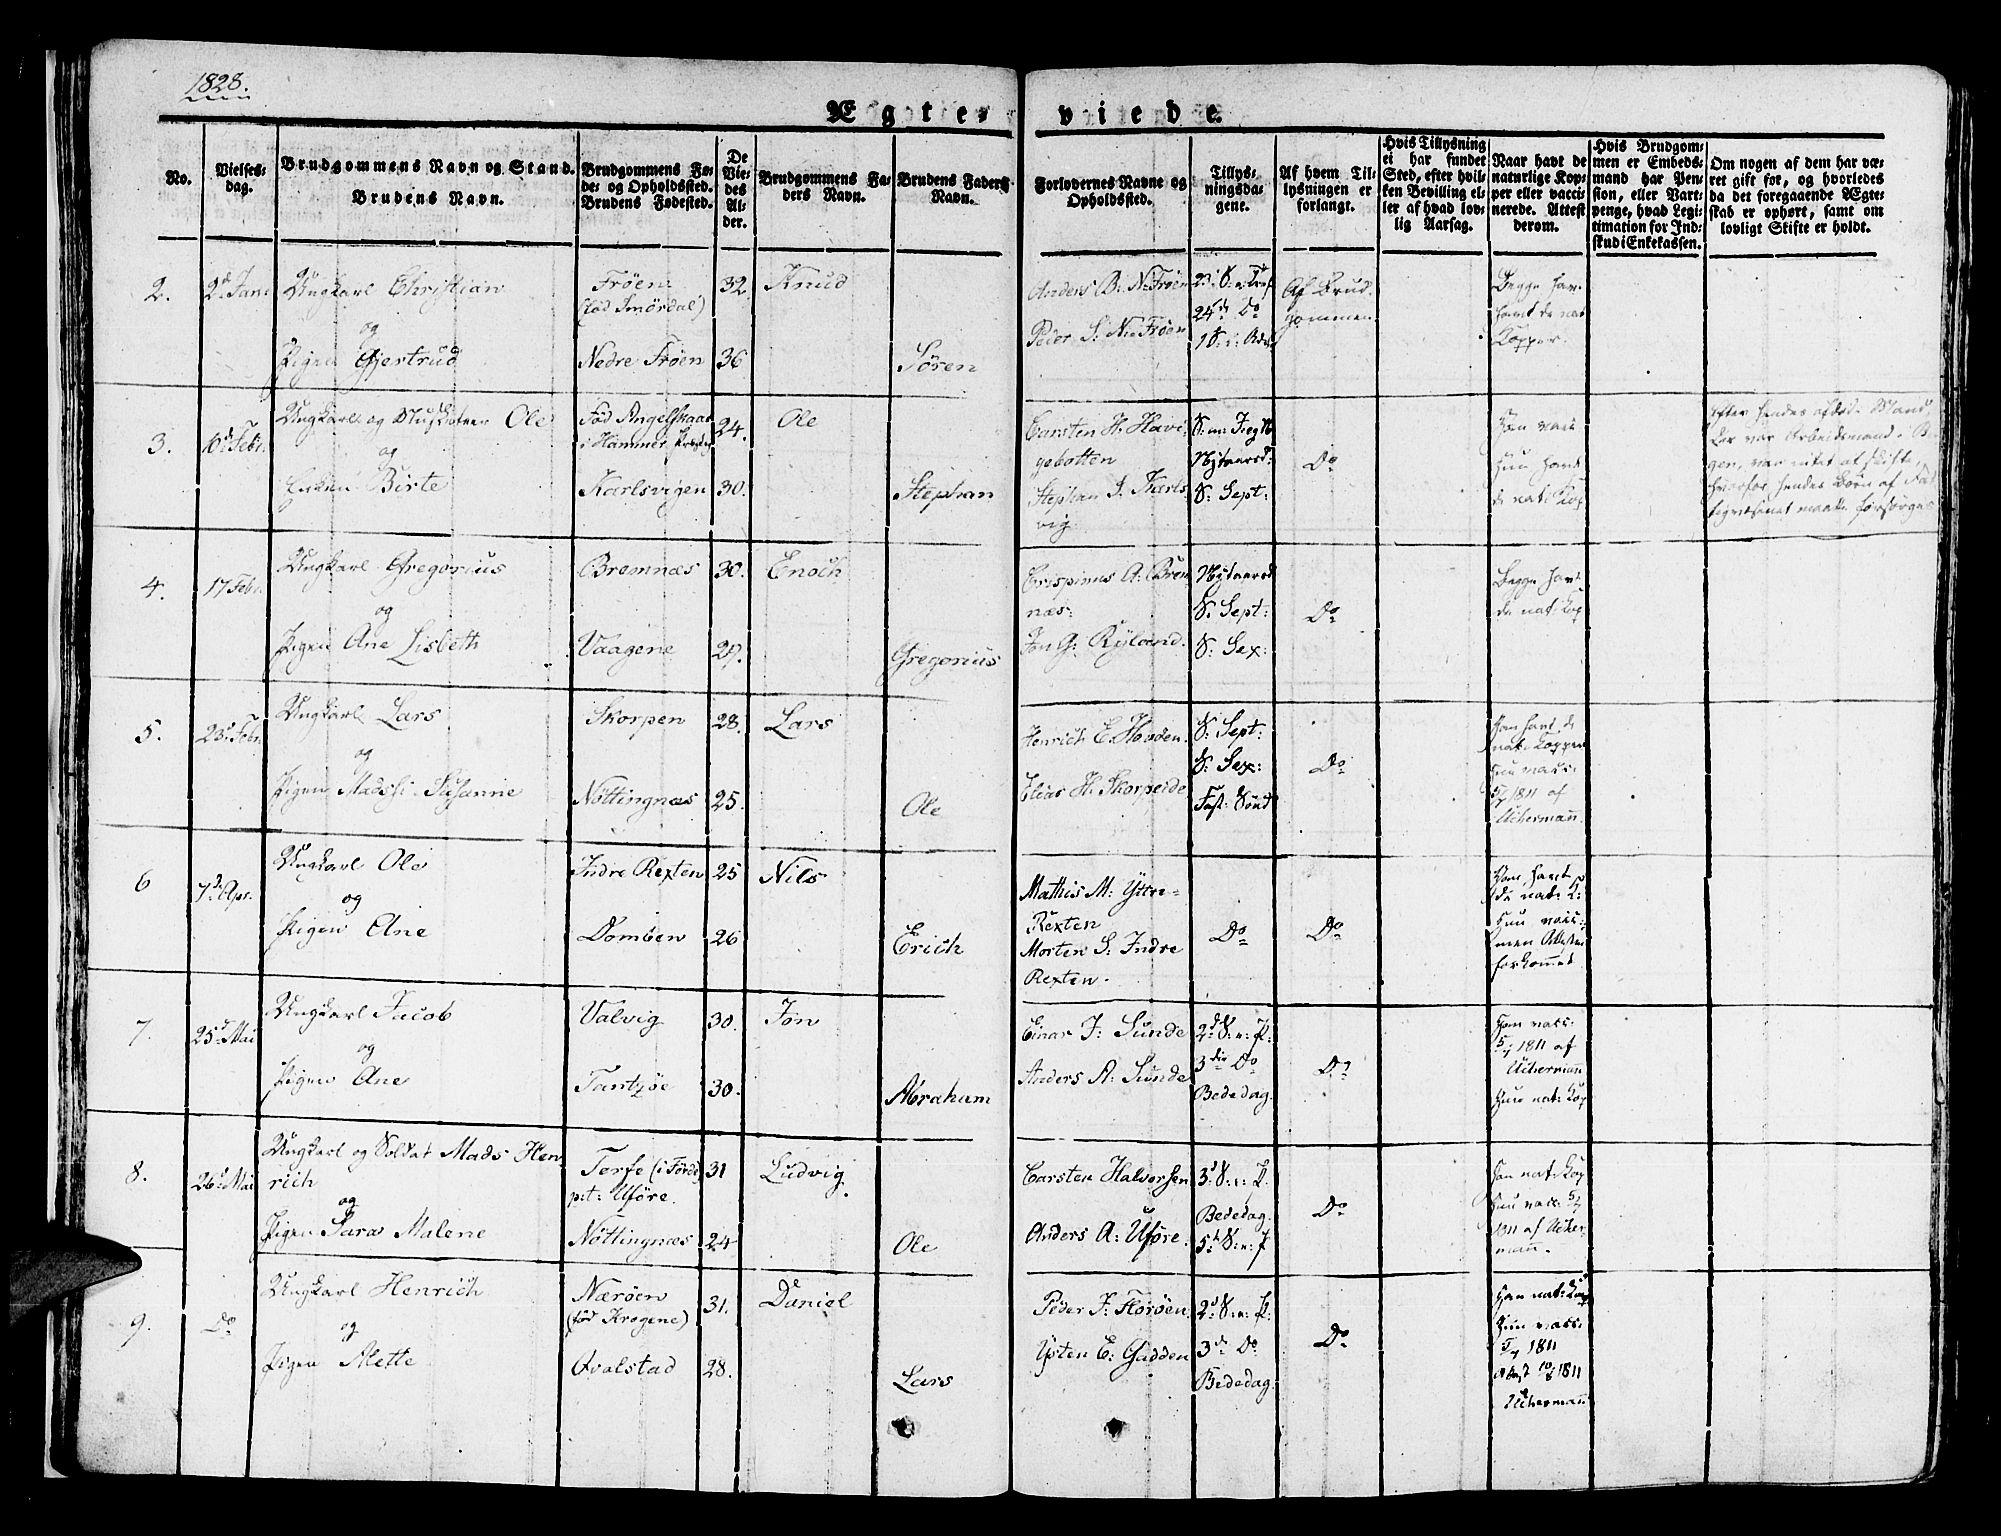 1828.
Ægte-
viede.
No.
Vielses-
dag.
Brudgommens Navn og Stand.
Brudens Navn.
Brudgommens Fø-
de- og Opholdssted.
Brudens Fødested.
De
Vie-
des
Al-
der.
Brudgommens Fa-
ders Navn.
Brudens Faders
Navn.
Forlovernes Navne og
Opholdssted.
Tillys-
ningsda-
gene.
Af hvem Til-
lysningen er
forlangt.
Hvis Tillysning
ei har fundet
Sted, efter hvil-
ken Bevilling el-
ler af hvad lov-
lig Aarsag.
Naar havt de
naturlige Kop-
per eller vacci-
nerede. Attest
derom.
Hvis Brudgom-
men er Embeds-
mand har Pen-
sion, eller Parti-
penge, hvad Legi-
timation for Ind-
skud i Enkekassen.
Om nogen af dem har væ-
ret gift før, og hvorledes
da det foregaaende Ægte-
skab er ophørt, samt om
lovligt Skifte er holdt.
2.
2d Jan:
Ungkarl Christian
og
Pigen Gjertrud
Frøen
(fød Smørdal)
Nedre Frøen
32.
36
Knud
Søren
Anders B: N: Frøen
Peder S: N: Frøen
24de Do
Af Brud-
gommen.
Begge hav
havt de nat
Kopper.
3.
10d Febr.
Ungkarl og Musketeer Ole
og
Enken Birte
Fød Angelskaar
i Hammer Præstg
Karlsvigen
24.
30.
Ole
Stephan
Carsten H: Havi-
gebotten
Stephan J. Karls
vig
Nytaarsd:
S: Sept:
Do
Han vacc
Hun havt
de nat: Kop
Efter hendes afdøde Mand,
der var Arbeidsmand i B
gen, var intet at skifte,
hvorfor hendes Børn af Fat
tigvæsenet maatte forsørges
4.
17 Febr.
Ungkarl Gregorius
og
Pigen Ane Lisbeth
Bremnæs
Vaagene
30.
29.
Enoch
Gregorius
Crispinus A: Brem
næs:
Jon G: Ryland.
Nytaarsd
S: Sept:
S: Sex:
Do
Begge havt
de nat: Kop
5.
23d Febr.
Ungkarl Lars
og
Pigen Madssi Susanne
Skorpen
Nøttingnæs
28.
25.
Lars
Ole
Henrich E. Hovden.
Elias H. Skorpeide
S: Sept:
S: Sex:
Fast: Sønd
Do
Han havt de
nat: Kopper
Hun vacc:
5/7 1811 af
Uchermann.
6
7de Apr.
Ungkarl Ole
og
Pigen Ane
Indre Rexten
Domben
25
26
Nils
Erich
Mathis M: Yttre-
Rexten
Morten S: Indre
Rexten.
Do
Do
Han havt
de nat: K:
Hun vacc:
men Attesten
forkommet
7.
25d Mai
Ungkarl Jacob
og
Pigen Ane
Valvig
Tantzøe
30.
30.
Jon
Abraham
Einar J: Sunde
Anders A: Sunde
2d S: e: P:
3die Do
Bededag.
Do
Han vacc:
5/7 1811 af
Uchermann
Hun nat: Kop
8.
26d Mai
Ungkarl og Soldat Mads Hen-
rich
og
Pigen Sara Malene
Terfe (i Førde
pst: Uføre.
Nøttingnæs
31
24
Ludvig
Ole
Carsten Halvorsen
Anders A: Uføre.
3d S: e: P.
Bededag.
5te S: e: P
Do
Han nat: Kop
Hun vacc. 5/7
1811 af Ucher-
mann.
9.
Do
Ungkarl Henrich
og
Pigen Mette
Nærøen
(fød Krogene)
Qvalstad
31.
28.
Daniel
Lars
Peder J: Florøen.
Ysten E: Gadden
2d S: e: P.
3de Do
Bededag.
Do
Han nat: Kop
Hun vacc:
5/7 1811
Attest 10/8 1811
Uchermann